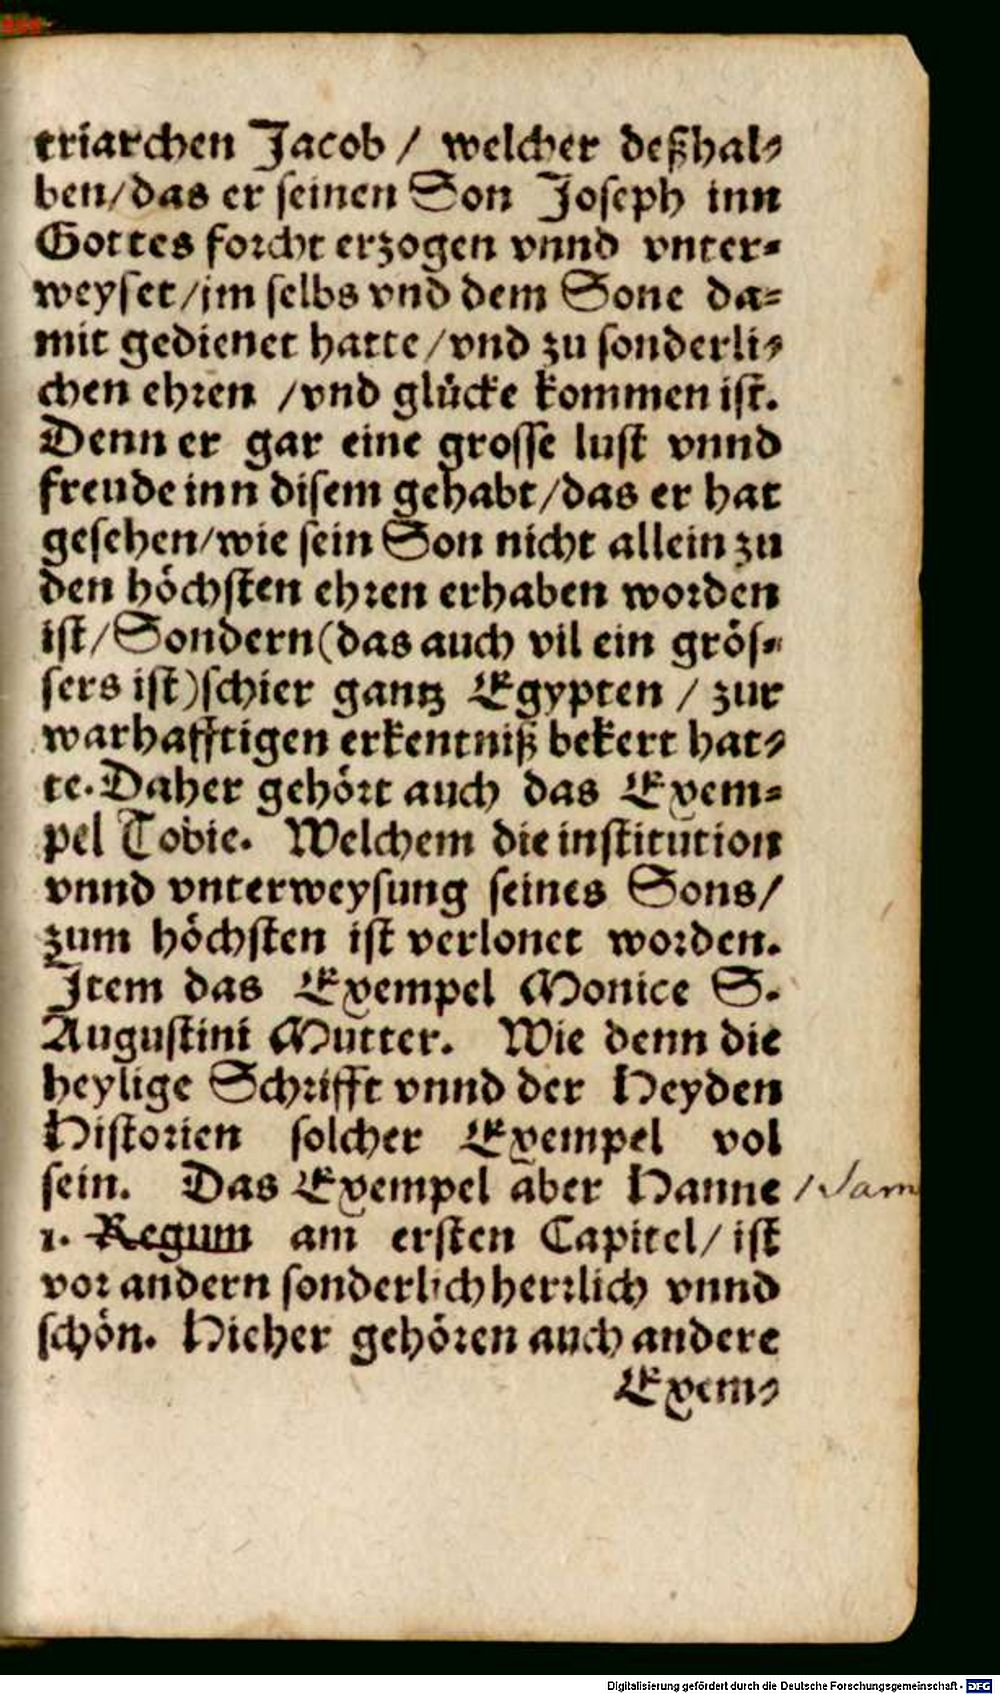 triarchen Jacob / welcher deßhal⸗
ben/das er seinen Son Joseph inn
Gottes forcht erzogen vnnd vnter⸗
weyset/jm selbs vnd dem Sone da⸗
mit gedienet hatte/vnd zu sonderli⸗
chen ehren /vnd glücke kommen ist.
Denn er gar eine grosse lust vnnd
freude inn disem gehabt/das er hat
gesehen/wie sein Son nicht allein zu
den höchsten ehren erhaben worden
ist/Sondern(das auch vil ein grös⸗
sers ist)schier gantz Egypten / zur
warhafftigen erkentniß bekert hat⸗
te. Daher gehört auch das Exem⸗
pel Tobie. Welchem die institution
vnnd vnterweysung seines Sons/
zum höchsten ist verlonet worden.
Item das Exempel Monice S.
Augustini Mutter. Wie denn die
heylige Schrifft vnnd der Heyden
Historien solcher Exempel vol
sein. Das Exempel aber Hanne / Sam
1. Regum am ersten Capitel/ ist
vor andern sonderlich herrlich vnnd
schön. Hieher gehören auch andere
Exem⸗
Digitalisierung gefördert durch die Deutsche Forschungsgemeinschaft - DFG